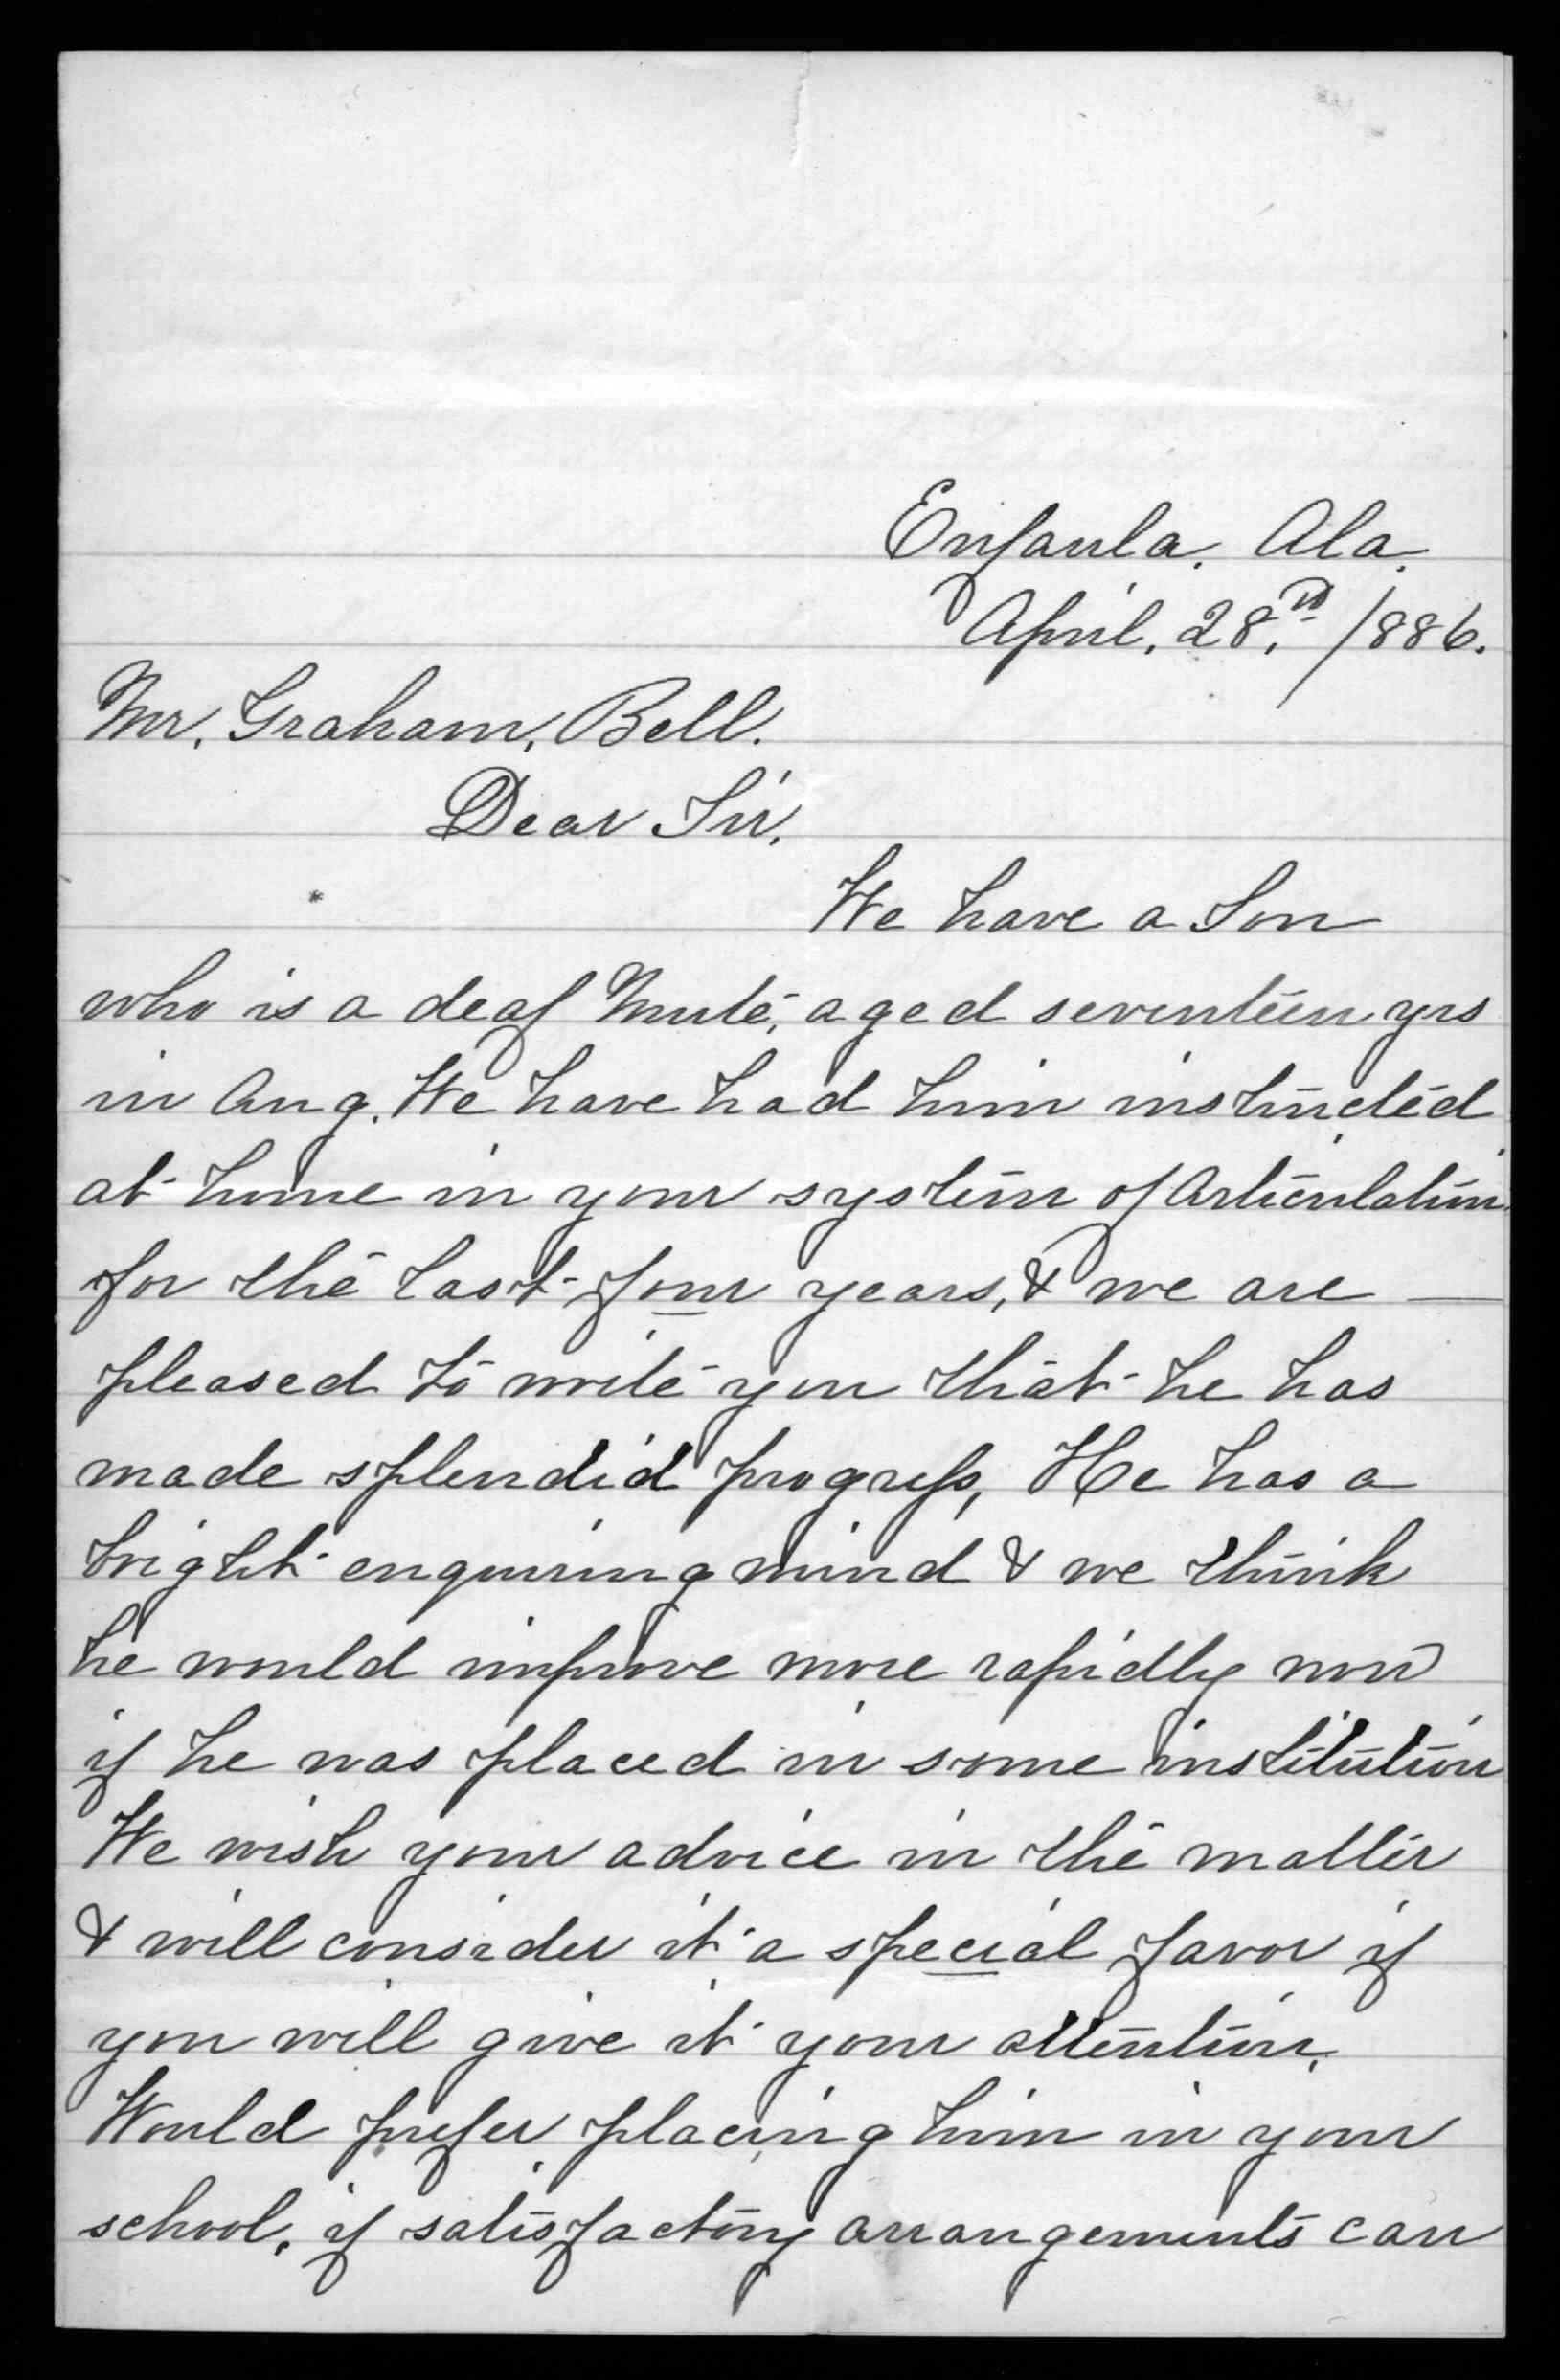 Eufaula. Ala.
April. 28.th /886.
Mr. Graham, Bell.
Dear Sir.
We have a Son
who is a deaf Mute, aged seventeen yrs
in Aug. We have had him instructed
at home in your system of Articulation
for the last four years, & we are —
pleased to write you that he has
made splendid progress, He has a
bright enquiring mind & we think
he would improve more rapidly now
if he was placed in some institution
We wish your advice in the matter
& will consider it a special favor if
you will give it your attention.
Would prefer placing him in your
school, if satisfactory arrangements can